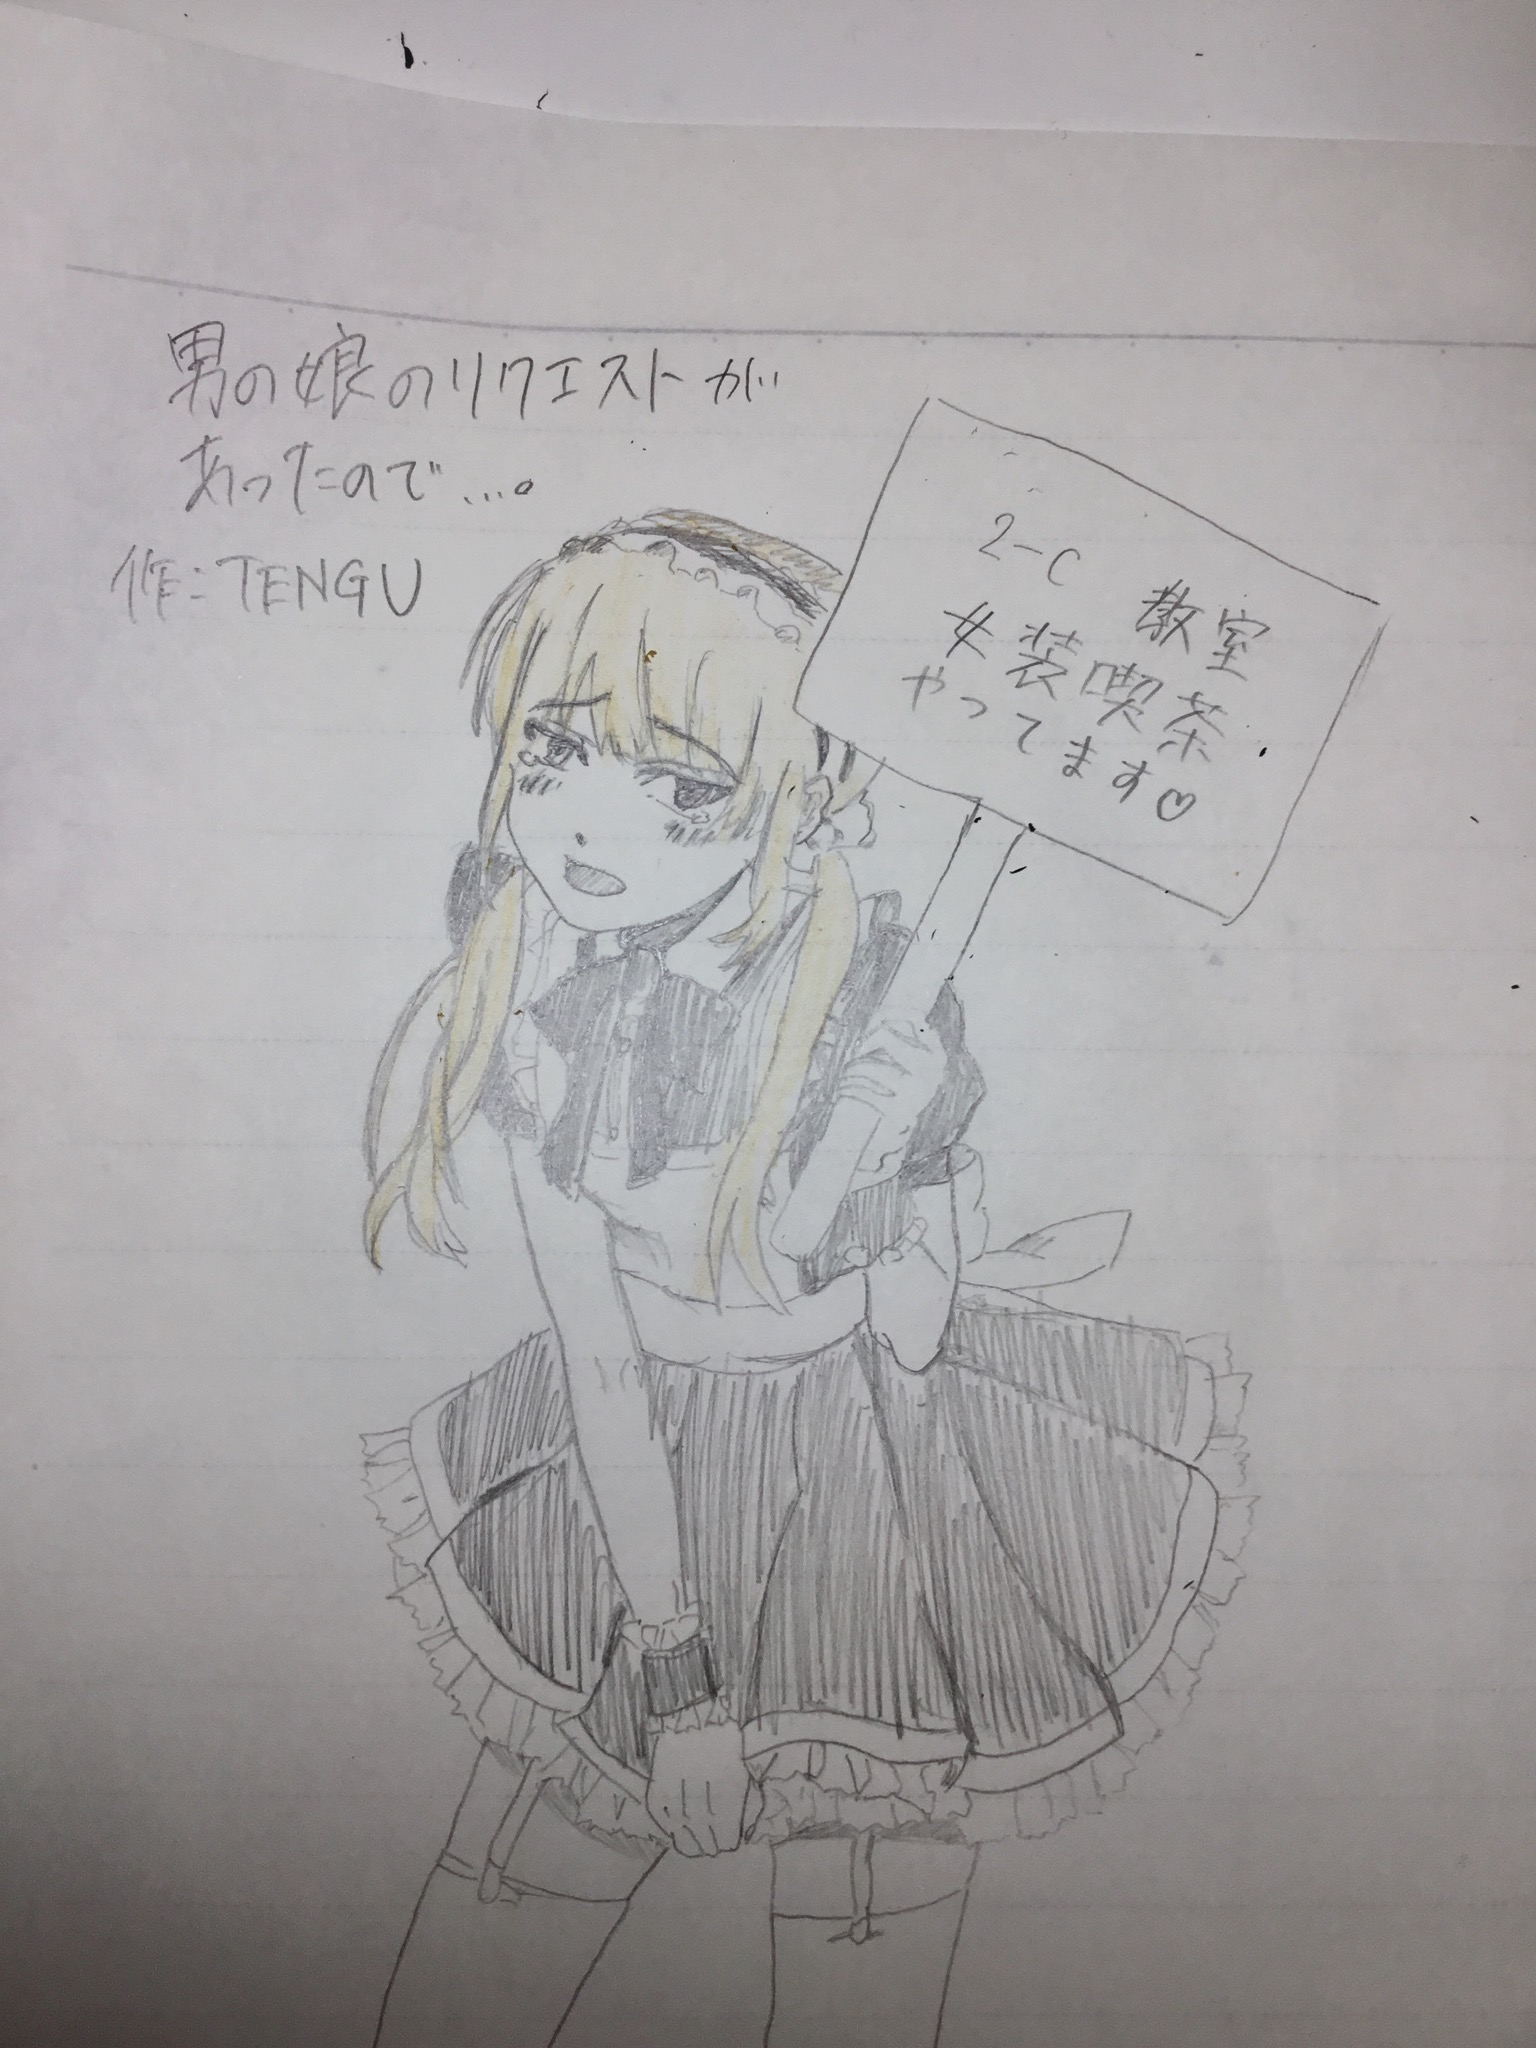 男の娘のリクエストが
あったので…。
作:TENGU
2-C 教室
女装喫茶
やってます♡